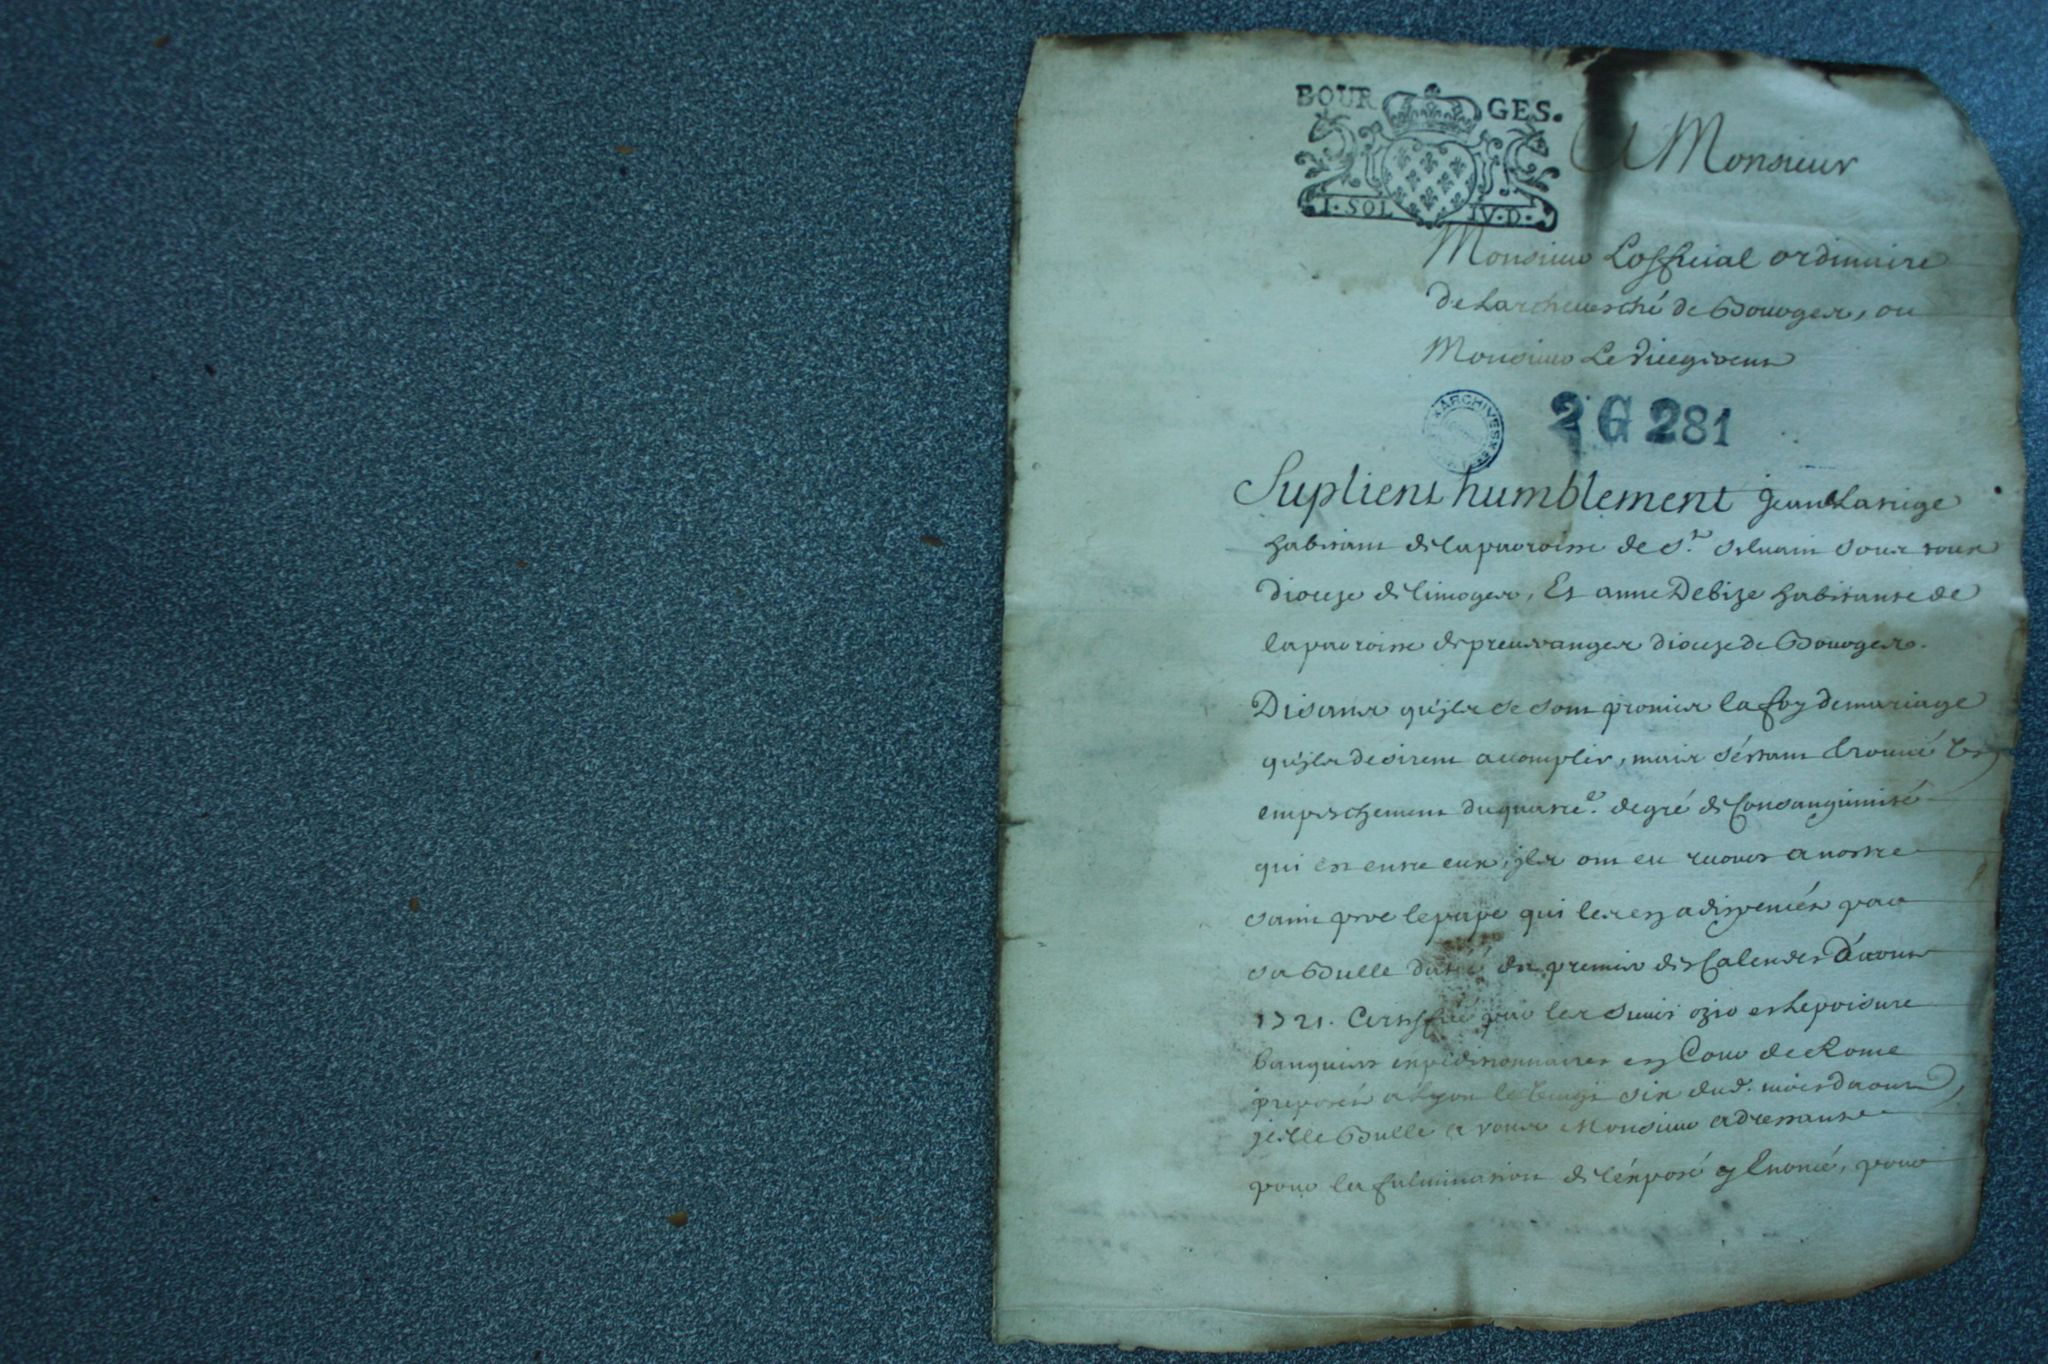 BOURGES.
I·SOL IV·D·
A Monsieur
Monsieur Lofficial ordinaire
de Larchevesché de Bourges, ou
Monsieur Le vicegerent
ARCHIVES
2 G 281
Suplient humblement Jean
habitant de la paroisse de St. Silvain sous
dioceze de limoges, Et anne Debize habitante de
la paroisse de preuvranges dioceze de Bourges.
Disants qu'jls se sont promis la foy de mariage
qu'jls desirent acomplir, mais s'éstant trouvé Un
empeschement du quatre. degré de Consanguinité
qui est entre eux, jls ont eu recours a nostre
saint pere le pape qui les en a dispencés par
sa Bulle datté du premier des Calendes D'aoust
1721. Certiffié par les sieurs ozio et Lepoivre
banquiers expeditionnaires en Cour de Rome
preposés a Lyon le vingt six dud. mois d'aoust,
jcelle Bulle a vous Monsieur adressante
pour la fulmination de l'éxposé y Enoncé, pour